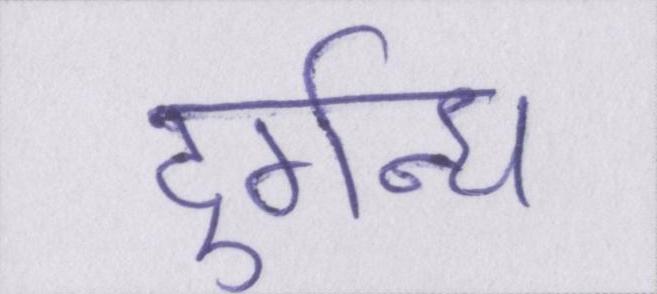 दुर्गन्ध